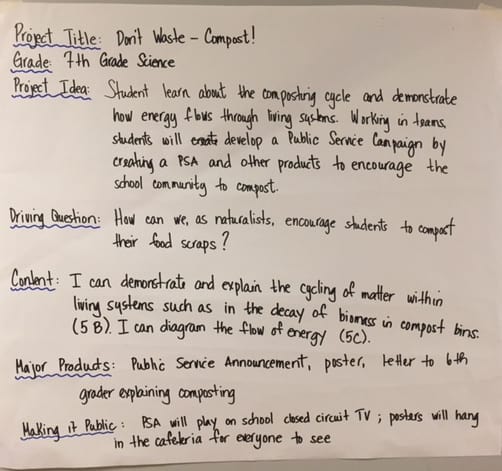 Project Title: Don't Waste - Compost!
Grade: 7th Grade Science
Project Idea: Student learn about the composting cycle and demonstrate
how energy flows through living systems. Working in teams,
students will create develop a Public Service Campaign by
creating a PSA and other products to encourage the
school community to compost.
Driving Question: How can we, as naturalists, encourage students to compost
their food scraps?
Content: I can demonstrate and explain the cycling of matter within
living systems such as in the decay of biomass in compost bins.
(5B). I can diagram the flow of energy (5C).
Major Products: Public Service Announcement, poster, letter to 6th
grader explaining composting
Making it Public: PSA will play on school closed circuit TV; posters will hang
in the cafeteria for everyone to see